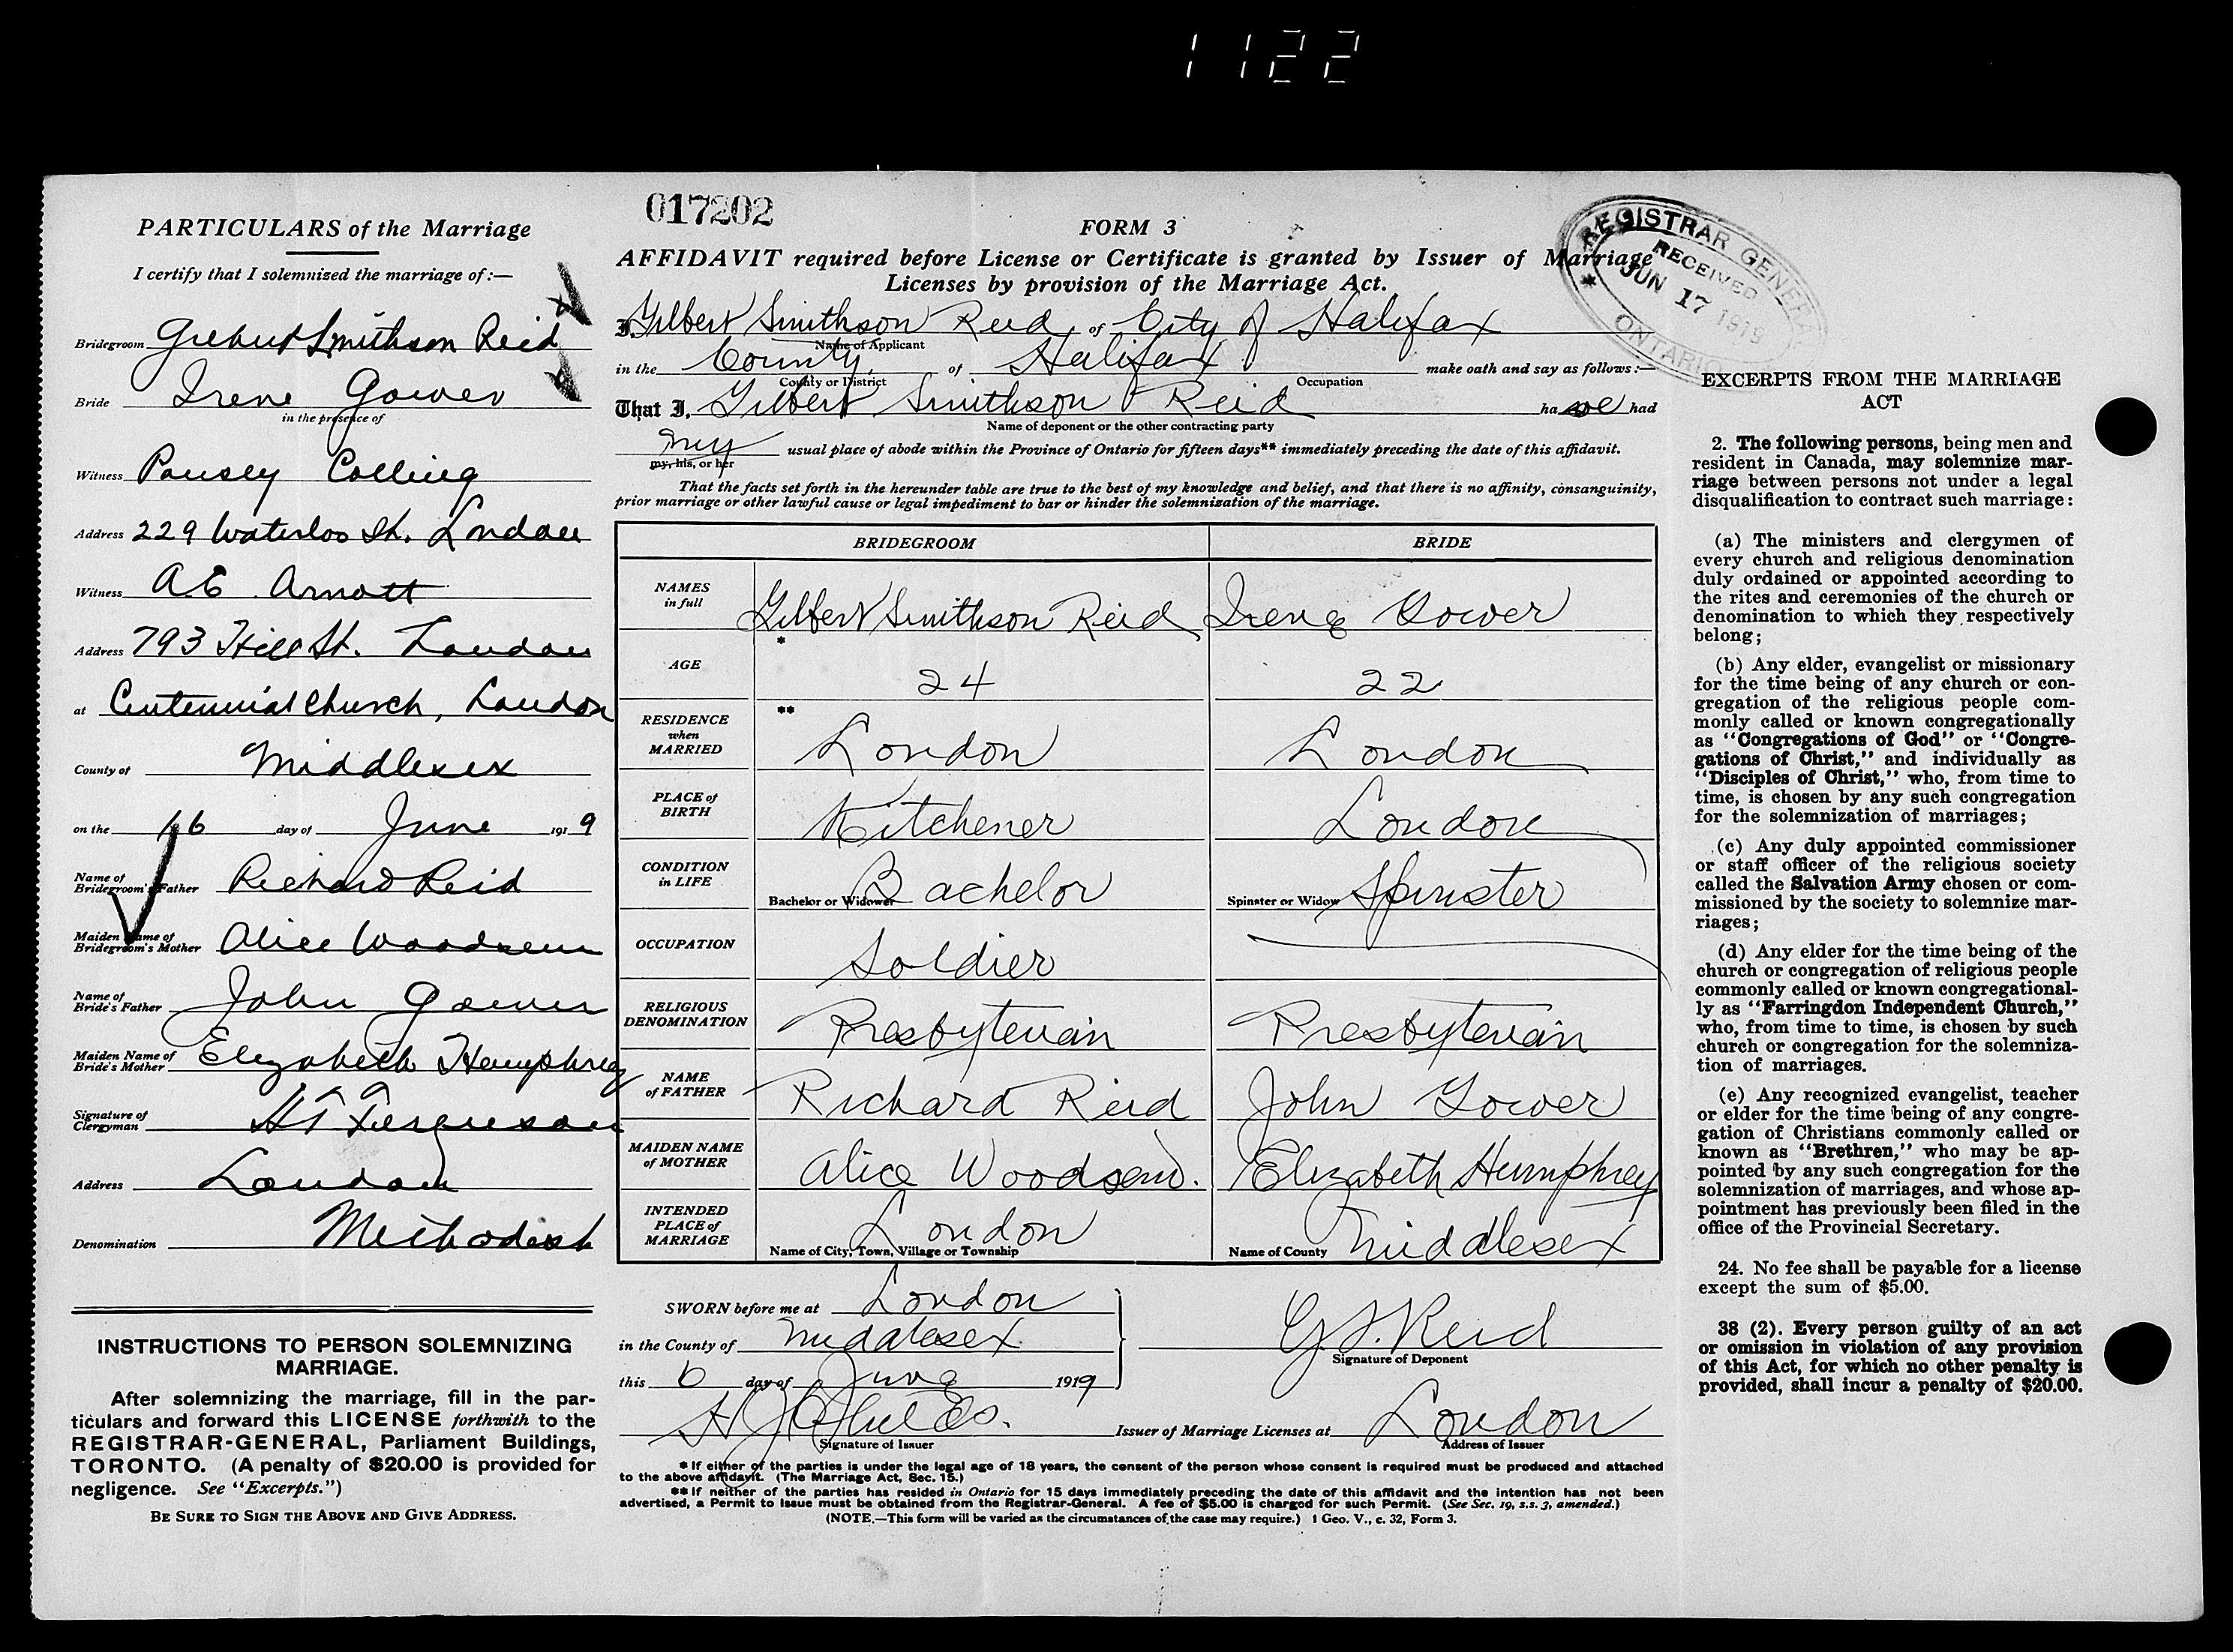 1122
PARTICULARS of the Marriage
I certify that I solemnized the marriage of:—
Bridegroom Gilbert Smithson Reid
Bride Irene Gower
in the presence of
Witness Pansey Colling
Address 229 Waterloo St. London
Witness A E Arnott
Address 793 Hill St. London
at Centennial Church, London
County of Middlesex
on the 16 day of June 1919
Name of
Bridegroom's Father Richard Reid
Maiden Name of
Bridegroom's Mother Alice Woodsend
Name of
Bride's Father John Gower
Maiden Name of
Bride's Mother Elizabeth Humphrey
Signature of
Clergyman Ferguson
Address London
Denomination Methodist
INSTRUCTIONS TO PERSON SOLEMNIZING
MARRIAGE.
After solemnizing the marriage, fill in the par-
ticulars and forward this LICENSE forthwith to the
REGISTRAR-GENERAL, Parliament Buildings,
TORONTO. (A penalty of $20.00 is provided for
negligence. See "Excerpts.")
BE SURE TO SIGN THE ABOVE AND GIVE ADDRESS.
017202
FORM 3
AFFIDAVIT required before License or Certificate is granted by Issuer of Marriage
Licenses by provision of the Marriage Act.
I, Gilbert Smithson Reid, of City of Halifax
Name of Applicant
in the County of Halifax make oath and say as follows:—
County or District Occupation
That I, Gilbert Smithson Reid ha ve had
Name of deponent or the other contracting party
my usual place of abode within the Province of Ontario for fifteen days** immediately preceding the date of this affidavit.
my, his, or her
That the facts set forth in the hereunder table are true to the best of my knowledge and belief, and that there is no affinity, consanguinity,
prior marriage or other lawful cause or legal impediment to bar or hinder the solemnization of the marriage.
BRIDEGROOM BRIDE
NAMES
in full Gilbert Smithson Reid Irene Gower
*
AGE 24 22
**
RESIDENCE
when
MARRIED London London
PLACE of
BIRTH Kitchener London
CONDITION
in LIFE Bachelor or Widower Bachelor Spinster or Widow Spinster
OCCUPATION Soldier
RELIGIOUS
DENOMINATION Presbyterian Presbyterian
NAME
of FATHER Richard Reid John Gower
MAIDEN NAME
of MOTHER Alice Woodsend. Elizabeth Humphrey
INTENDED
PLACE of
MARRIAGE London Middlesex
Name of City, Town, Village or Township Name of County
SWORN before me at London
in the County of Middlesex G. S. Reid
Signature of Deponent
this 6 day of June 1919
Issuer of Marriage Licenses at London
Signature of Issuer Address of Issuer
* If either of the parties is under the legal age of 18 years, the consent of the person whose consent is required must be produced and attached
to the above affidavit. (The Marriage Act, Sec. 15.)
** If neither of the parties has resided in Ontario for 15 days immediately preceding the date of this affidavit and the intention has not been
advertised, a Permit to Issue must be obtained from the Registrar-General. A fee of $5.00 is charged for such Permit. (See Sec. 19, s.s. 3, amended.)
(NOTE.—This form will be varied as the circumstances of the case may require.) 1 Geo. V., c. 32, Form 3.
REGISTRAR GENERAL
RECEIVED
JUN 17 1919
ONTARIO
EXCERPTS FROM THE MARRIAGE
ACT
2. The following persons, being men and
resident in Canada, may solemnize mar-
riage between persons not under a legal
disqualification to contract such marriage:
(a) The ministers and clergymen of
every church and religious denomination
duly ordained or appointed according to
the rites and ceremonies of the church or
denomination to which they respectively
belong;
(b) Any elder, evangelist or missionary
for the time being of any church or con-
gregation of the religious people com-
monly called or known congregationally
as "Congregations of God" or "Congre-
gations of Christ," and individually as
"Disciples of Christ," who, from time to
time, is chosen by any such congregation
for the solemnization of marriages;
(c) Any duly appointed commissioner
or staff officer of the religious society
called the Salvation Army chosen or com-
missioned by the society to solemnize mar-
riages;
(d) Any elder for the time being of the
church or congregation of religious people
commonly called or known congregational-
ly as "Farringdon Independent Church,"
who, from time to time, is chosen by such
church or congregation for the solemniza-
tion of marriages.
(e) Any recognized evangelist, teacher
or elder for the time being of any congre-
gation of Christians commonly called or
known as "Brethren," who may be ap-
pointed by any such congregation for the
solemnization of marriages, and whose ap-
pointment has previously been filed in the
office of the Provincial Secretary.
24. No fee shall be payable for a license
except the sum of $5.00.
38 (2). Every person guilty of an act
or omission in violation of any provision
of this Act, for which no other penalty is
provided, shall incur a penalty of $20.00.